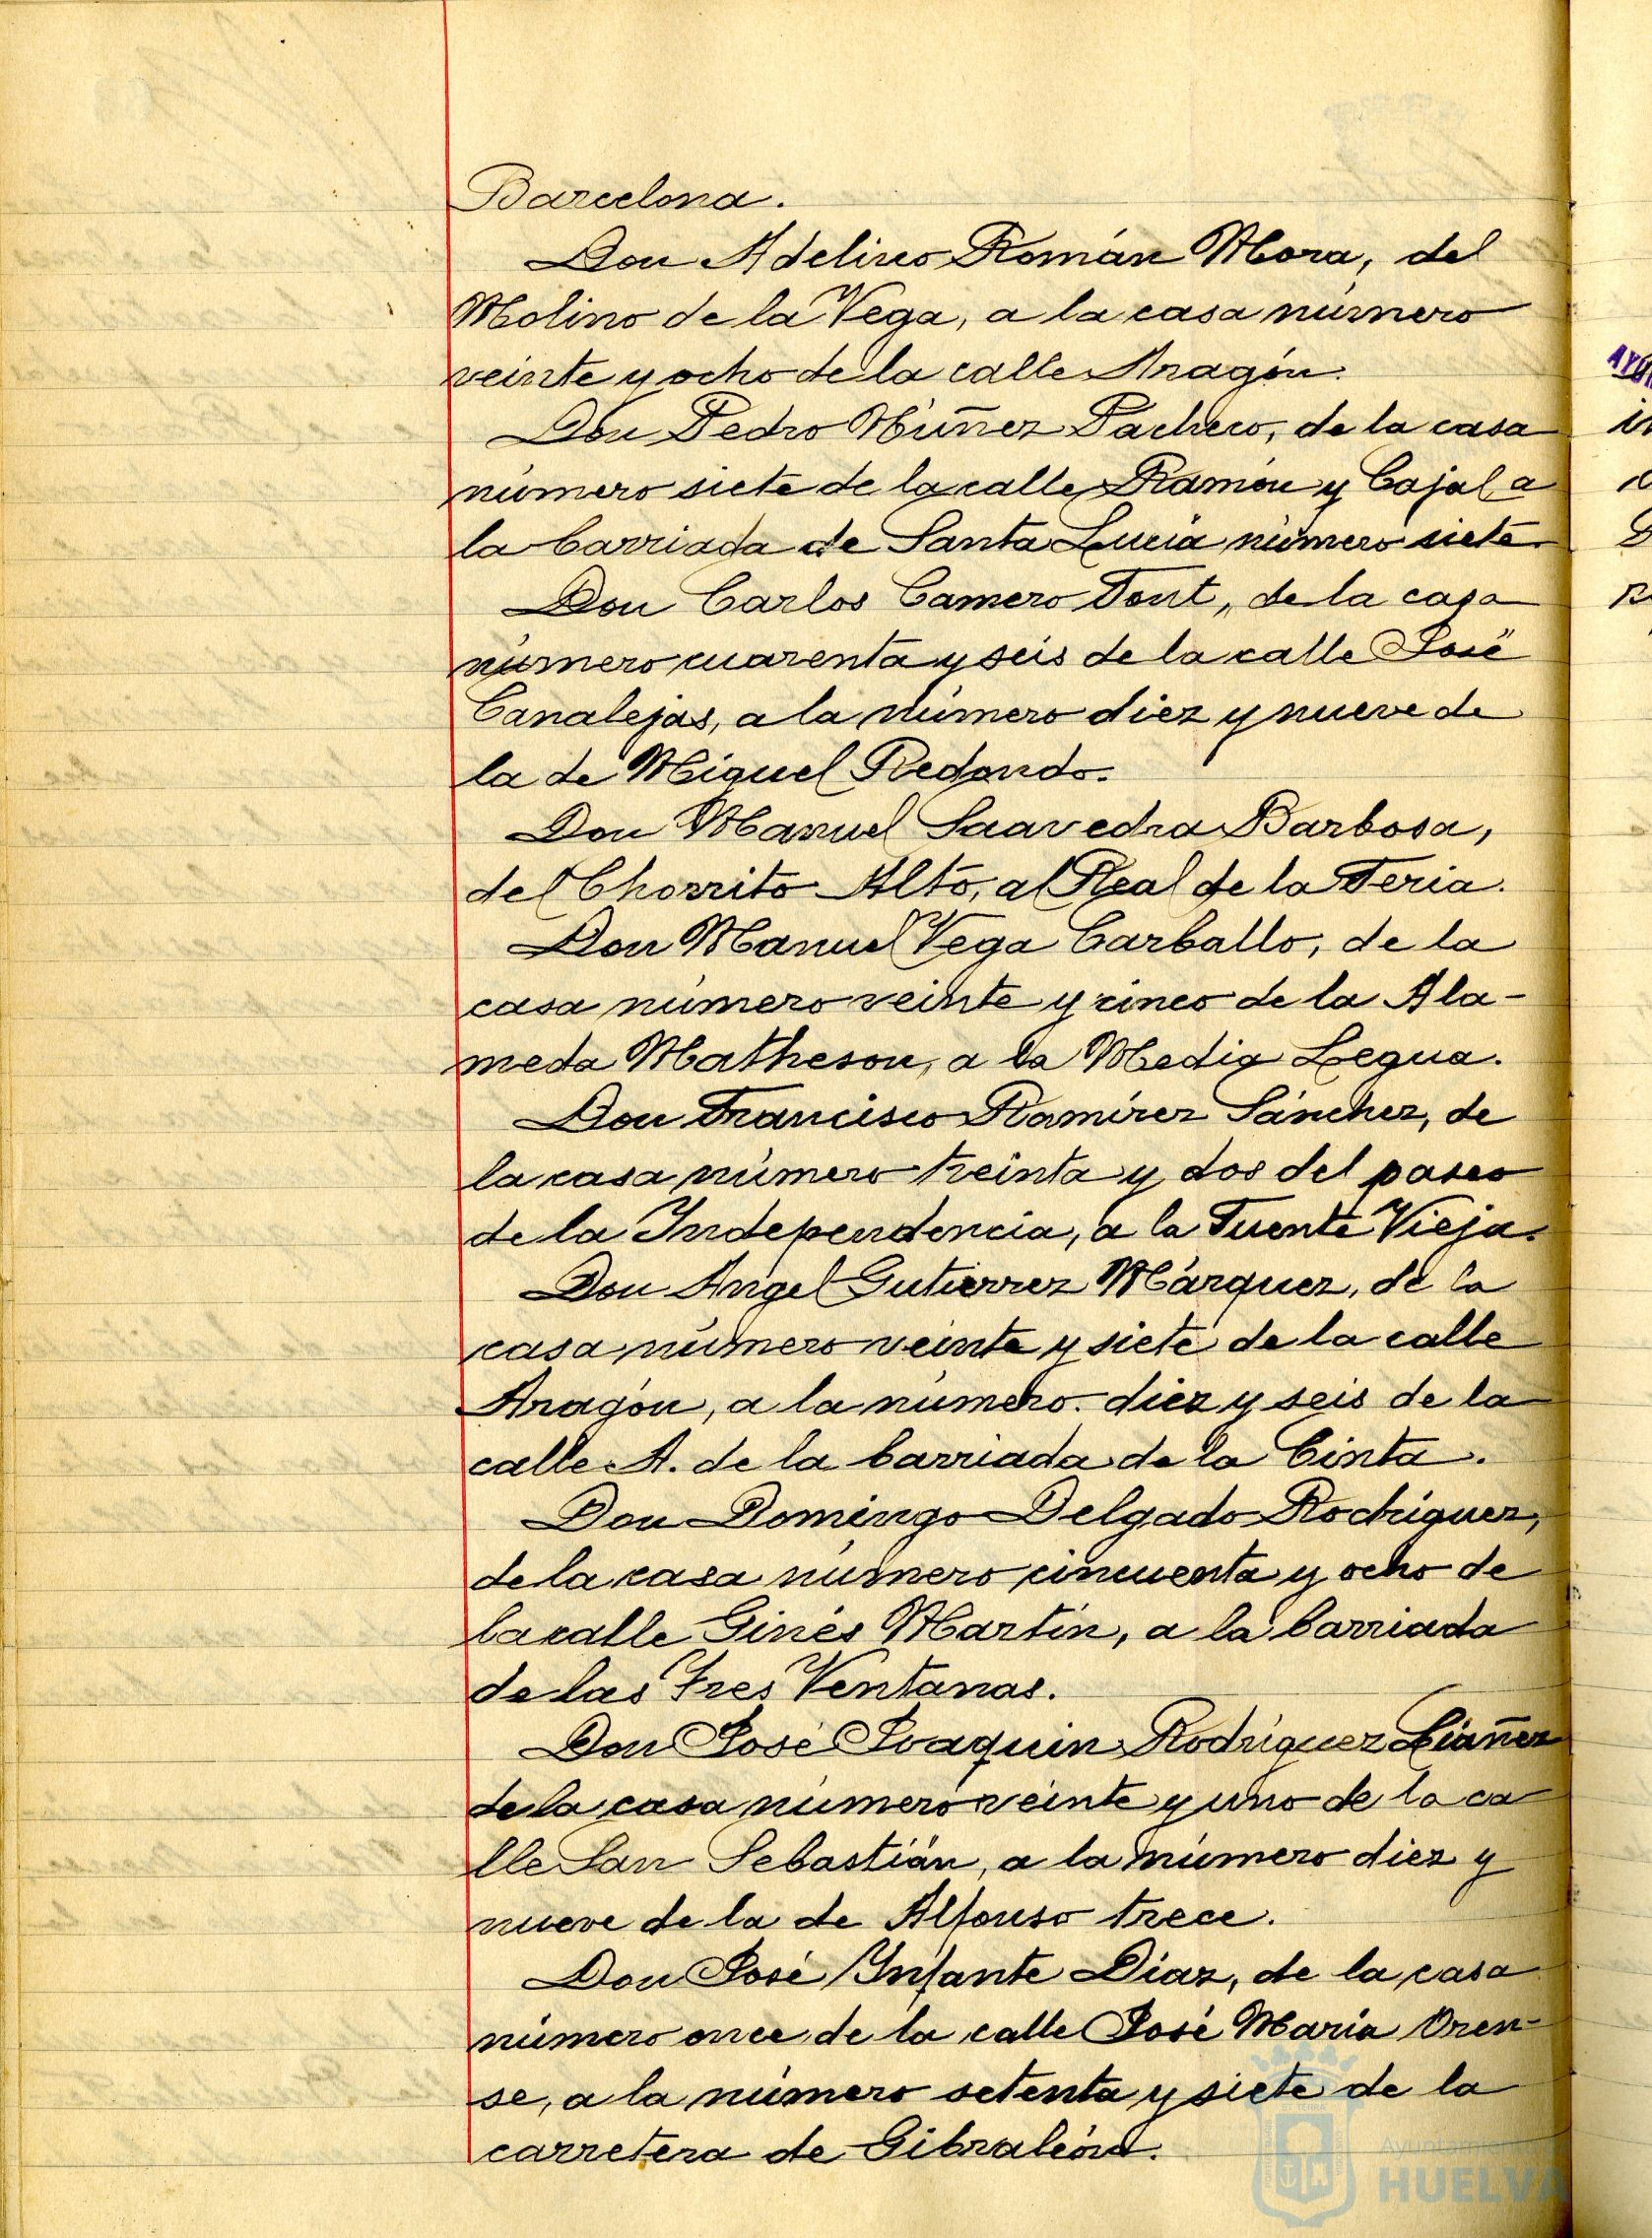 Barcelona.
Don Adelino Román Mora, del
Molino de la Vega, a la casa número
veinte y ocho de la calle Aragón.
Don Pedro Núñez Pacheco, de la casa
número siete de la calle Ramón y Cajal a
la barriada de Santa Lucía número siete.
Don Carlos Camero Font, de la casa
número cuarenta y seis de la calle José
Canalejas, a la número diez y nueve de
la de Miguel Redondo.
Don Manuel Saavedra Barbosa,
del Chorrito Alto, al Real de la Feria.
Don Manuel Vega Carballo, de la
casa número veinte y cinco de la Ala-
meda Matheson, a la Media Legua.
Don Francisco Ramírez Sánchez, de
la casa número treinta y dos del paseo
de la Independencia, a la Fuente Vieja.
Don Angel Gutierrez Márquez, de la
casa número veinte y siete de la calle
Aragón, a la número diez y seis de la
calle A. de la barriada de la Cinta.
Don Domingo Delgado Rodríguez,
de la casa número cincuenta y ocho de
la calle Ginés Martín, a la barriada
de las Tres Ventanas.
Don José Joaquín Rodríguez Liáñez
de la casa número veinte y uno de la ca
lle San Sebastián, a la número diez y
nueve de la de Alfonso trece.
Don José Infante Díaz, de la casa
número once de la calle José María Oren-
se, a la número setenta y siete de la
carretera de Gibraleón.
Ayuntamiento
HUELVA